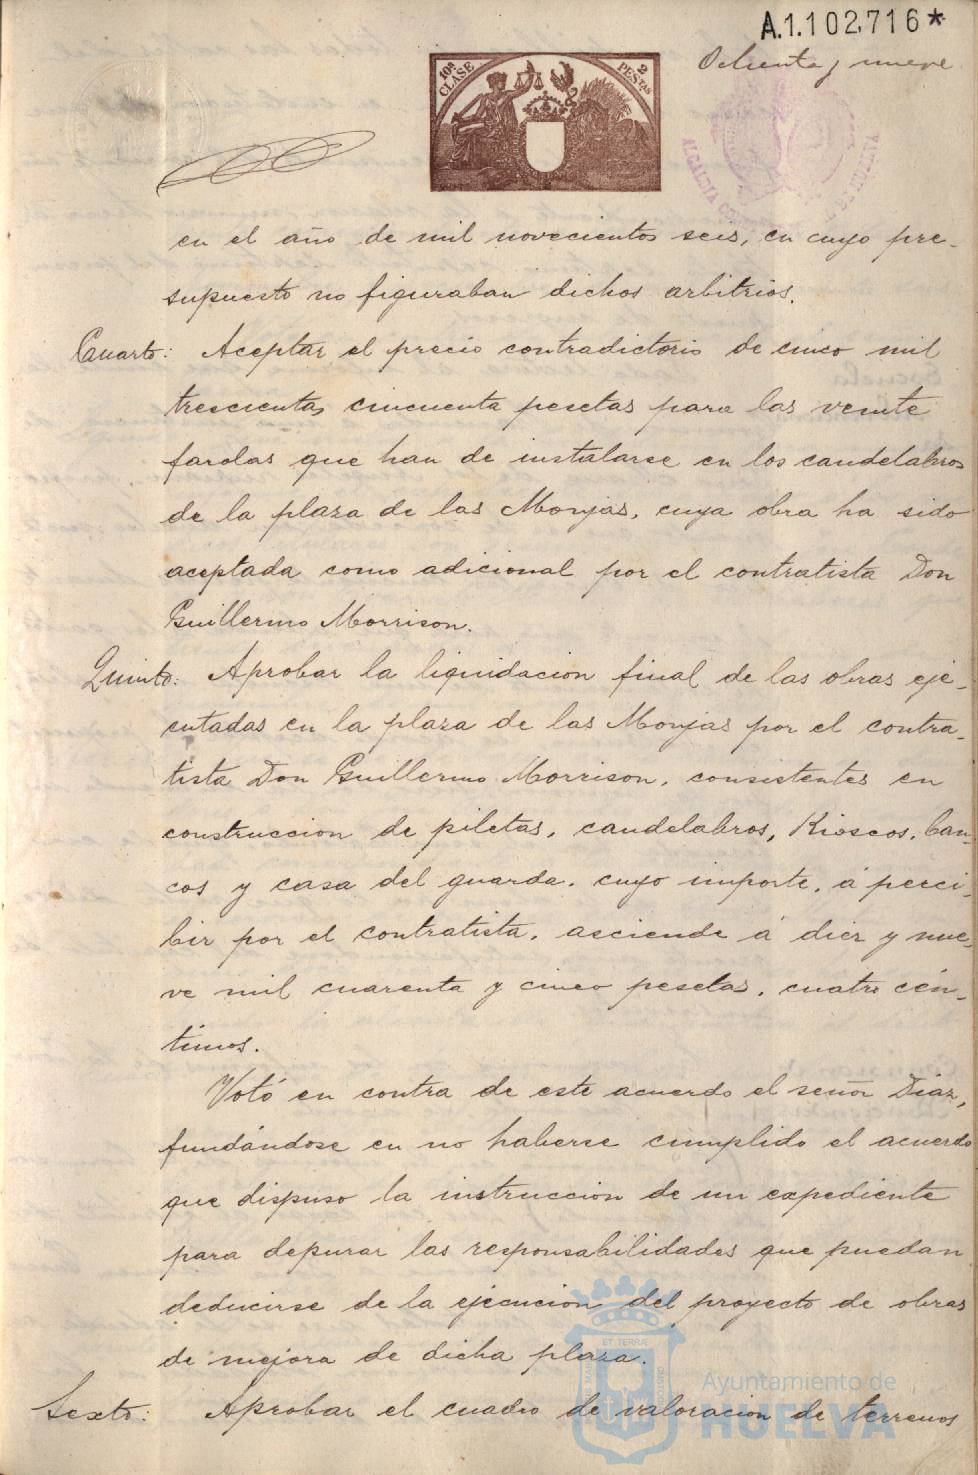 A.1.102,716*
Ochenta y nueve
10ª CLASE
2 PESTAS
ALCALDIA
DE HUELVA
en el año de mil novecientos seis, en cuyo pre-
supuesto no figuraban dichos arbitrios.
Cuarto: Aceptar el precio contradictorio de cinco mil
trescientas cincuenta pesetas para las veinte
farolas que han de instalarse en los candelabros
de la plaza de las Monjas, cuya obra ha sido
aceptada como adicional por el contratista Don
Guillermo Morrison.
Quinto: Aprobar la liquidacion final de las obras eje-
cutadas en la plaza de las Monjas por el contra-
tista Don Guillermo Morrison, consistentes en
construccion de piletas, candelabros, Kioscos, ban-
cos y casa del guarda, cuyo importe, á perci-
bir por el contratista, asciende á diez y nue-
ve mil cuarenta y cinco pesetas, cuatro cén-
timos.
Votó en contra de este acuerdo el señor Diaz,
fundándose en no haberse cumplido el acuerdo
que dispuso la instruccion de un expediente
para depurar las responsabilidades que puedan
deducirse de la ejecucion del proyecto de obras
de mejora de dicha plaza.
Sexto: Aprobar el cuadro de valoracion de terrenos
ET TERRÆ
Ayuntamiento de
HUELVA